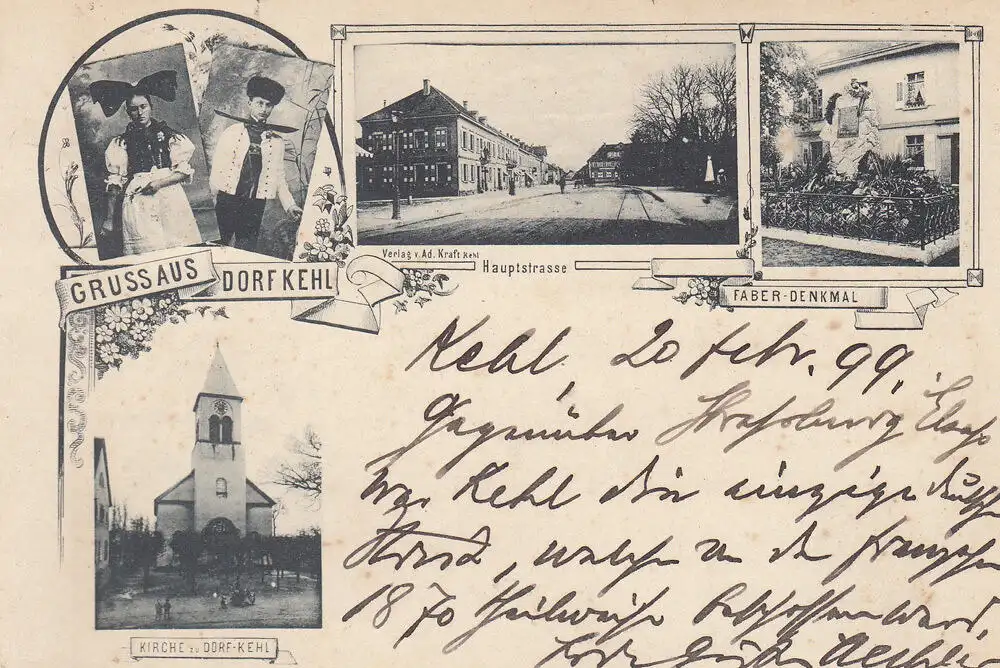 GRUSS AUS DORF KEHL
Verlag v. Ad. Kraft Kehl
Hauptstrasse
FABER-DENKMAL
KIRCHE zu DORF-KEHL
Kehl, 20 Febr. 99.
Gegenüber Strassburg Elsass
war Kehl die einzige deutsche
Stadt, welche von den Franzosen
1870 theilweise beschossen ward.